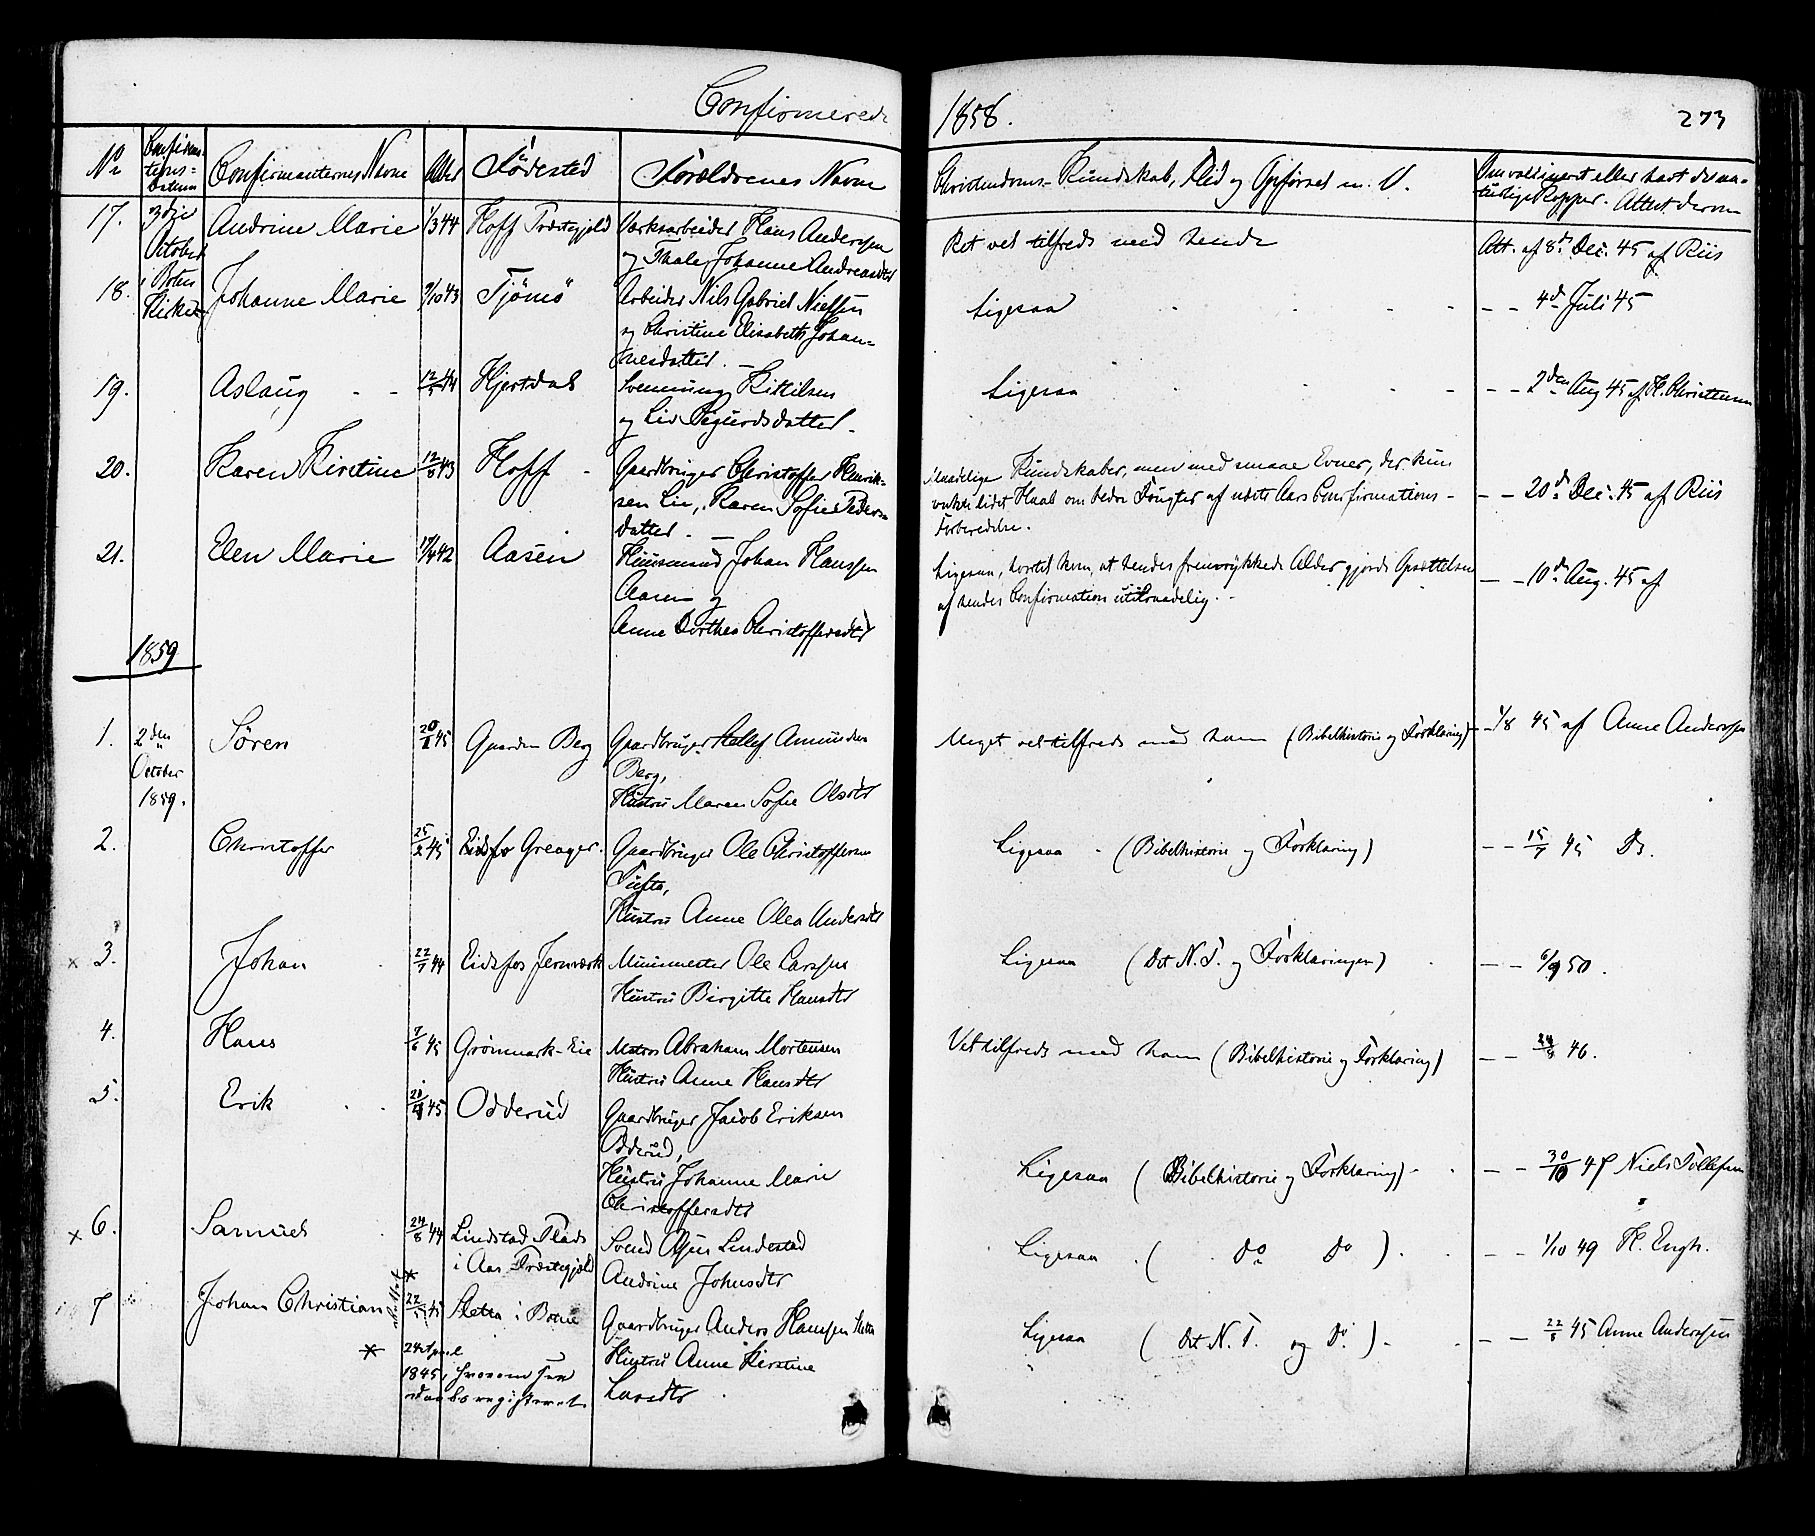 Confirmerede 1858.
273
No
Confirmations-Datum
Confirmanternes Navne
Alder
Födested
Forældrenes Navne
Christendoms-Kundskab, Flid og Opförsel m. V.
Om vaccineret eller havt de naturlige Kopper. Attest derom
17. 3die October i Botne Kirke
Andrine Marie 1/3 44 Hoff Præstegjeld Værksarbeider Hans Andersen
og Thale Johanne Andreasdtr
Ret vel tilfreds med hende
Att. af 8d Dec. 45 af Riis
18. Johanne Marie 9/10 43 Tjömö Arbeider Nils Gabriel Nielsen
og Christine Elisabeth Johan-
nesdatter. –
Ligesaa
– – 4d Juli 45
19. Aslaug 44 Hjertdal Svennung Kittilsen
og Liv Sigurdsdatter.
Ligesaa
– – 2den Aug 45 af H. Christensen
20. Karen Kirstine 12/8 43 Hoff Gaardbruger Christoffer Henrik-
sen Lie, Karen Sofie Peders-
datter. –
Maadelige Kundskaber, men med smaae Evner, der kun
vakte lidet Haab om bedre Frugter af nok et Aars Confirmations-
Forberedelse.
– – 20d Dec. 45 af Riis
21. Elen Marie 42 Aasen Huusmand Johan Hanssen
Aasen og
Anne Dorthea Christoffersdtr
Ligesaa, hvortil kom, at hendes fremrykkede Alder gjorde Opsættelsen
af hendes Confirmation utilraadelig. –
– – 10d Aug. 45 af
1859
1. 2den October 1859.
Sören 45 Gaarden Berg Gaardbruger Amundsen
Berg,
Hustru Maren Sofie Olsdtr
Meget vel tilfreds med ham (Bibelhistorie og Forklaring)
– – 1/8 45 af Anne Anderssen
2. Christoffer 25/2 45 Eidsfos Greager. Gaardbruger Ole Christoffersen
Tufte,
Hustru Anne Olea Andersdtr
Ligesaa (Bibelhistorie og Forklaring)
– – 15/7 45 Do.
x 3. Johan 22/7 44 Eidsfos Jernværk Muurmester Ole Larssen
Hustru Birgitte Hansdtr
Ligesaa (Det N. T. og Forklaringen)
– – 6/9 50.
4. Hans 7/6 45 Grönmark-Eie Matros Abraham Mortensen
Hustru Anne Hansdtr
Vel tilfreds med ham (Bibelhistorie og Forklaring)
– – 46.
5. Erik 45 Odderud Gaardbruger Jacob Eriksen
Odderud,
Hustru Johanne Marie
Christoffersdtr
Ligesaa (Bibelhistorie og Forklaring)
– – 30/10 47 Niels Tollefsen
x 6. Samuel 24/8 44 Lindstad Plads
i Aas Præstegjeld
Svend Olsen Lindestad
Andrine Johnsdtr
Ligesaa ( Do Do )
– – 1/10 49 H. Engh.
7 Johan Christian * 45 Sletta i Botne Gaardbruger Anders Hanssen Sletta
Hustru Anne Kirstine
Larsdtr
Ligesaa (Det N. T. og Do)
– – 22/8 45 Anne Anderssen
* 24 April
1845, hvorom
registeret.